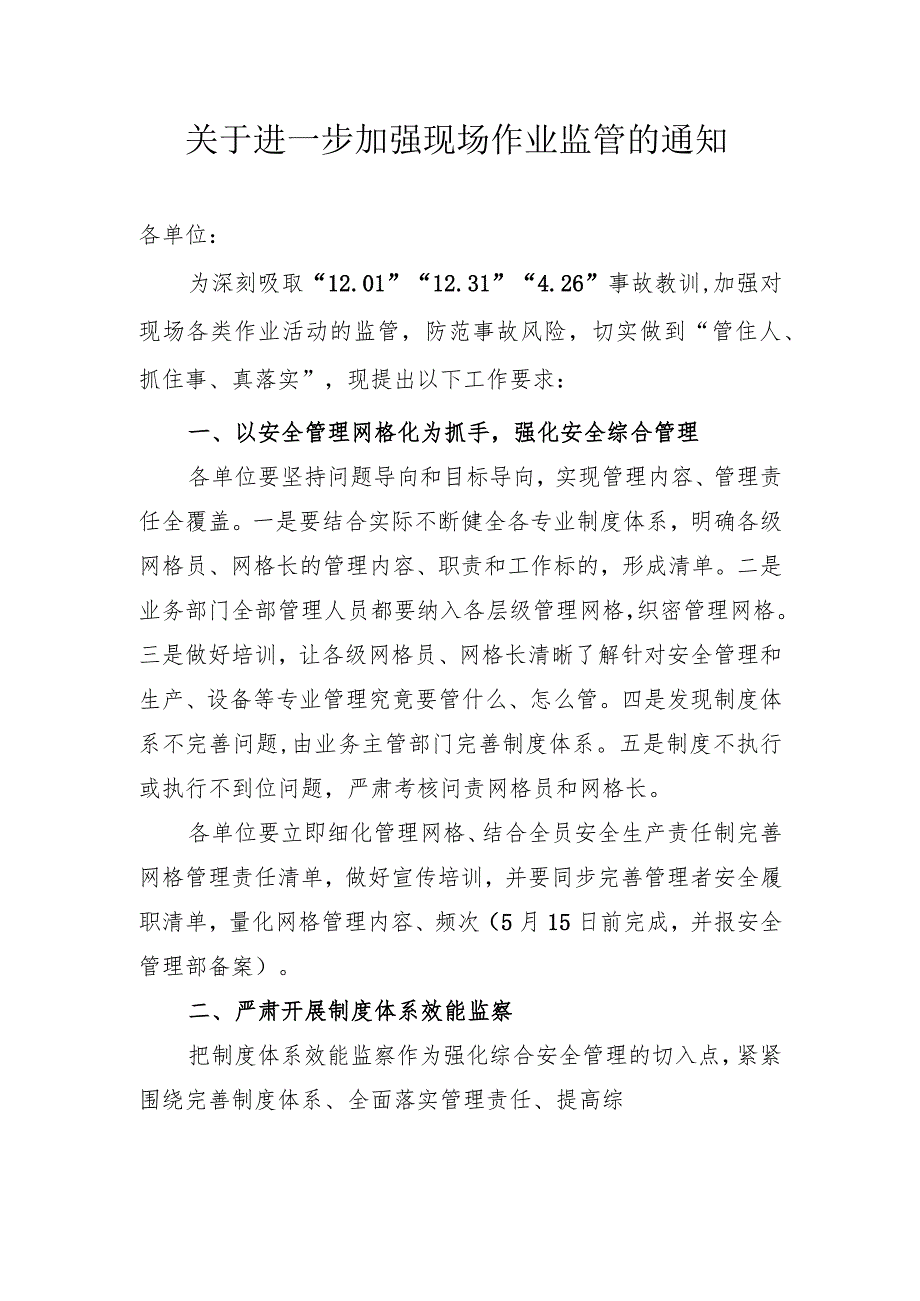 关于进一步加强现场作业监管的通知
各单位：
为深刻吸取“12.01”“12.31”“4.26”事故教训,加强对
现场各类作业活动的监管，防范事故风险，切实做到“管住人、
抓住事、真落实”，现提出以下工作要求：
一、以安全管理网格化为抓手，强化安全综合管理
各单位要坚持问题导向和目标导向，实现管理内容、管理责
任全覆盖。一是要结合实际不断健全各专业制度体系，明确各级
网格员、网格长的管理内容、职责和工作标的，形成清单。二是
业务部门全部管理人员都要纳入各层级管理网格，织密管理网格。
三是做好培训，让各级网格员、网格长清晰了解针对安全管理和
生产、设备等专业管理究竟要管什么、怎么管。四是发现制度体
系不完善问题,由业务主管部门完善制度体系。五是制度不执行
或执行不到位问题，严肃考核问责网格员和网格长。
各单位要立即细化管理网格、结合全员安全生产责任制完善
网格管理责任清单，做好宣传培训，并要同步完善管理者安全履
职清单，量化网格管理内容、频次（5 月 15 日前完成，并报安全
管理部备案）。
二、严肃开展制度体系效能监察
把制度体系效能监察作为强化综合安全管理的切入点，紧紧
围绕完善制度体系、全面落实管理责任、提高综